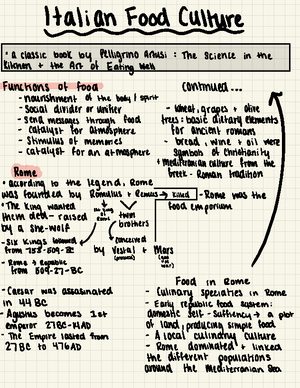 Italian Food Culture
• a classic book by Pelligrino Artusi : The Science in the
Kitchen + the Art of Eating Well
Functions of food
- nourishment of the body / spirit
- Social divider or unifier
- send messages through food
- catalyst for atmosphere
- Stimulus of memories
- catalyst for an atmosphere
Rome
• according to the legend, Rome
was founded by Romulus + Remus → killed
• The King wanted
them dead - raised
by a she-wolf
the king of Rome
twin
brothers
- Six Kings followed
from 753-509 BC
- Rome & Republic
from 509-27-BC
conceived
by Vestal + Mars
(god of war)
- Caesar was assasinated
in 44 BC
- Agustus becomes 1st
emperor 27BC-14AD
- The Empire lasted from
27BC to 476AD
continued...
- wheat, grapes + olive
trees - basic dietary elements
for ancient romans
- bread, wine + oil were
symbols of christianity
+ mediterranean culture from the
Greek - Roman tradition
- Rome was the
food emporium
Food in Rome
- Culinary specialties in Rome
- Early republic food system:
domestic self-suffiency → a plot
of land, producing simple food
- A local culindry culture
- Rome dominated + linked
the different populations
around the Mediterranean Sea.